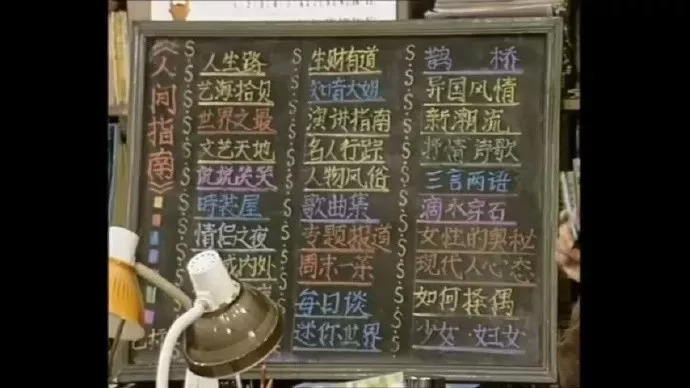 《人间指南》
人生路
艺海拾贝
世界之最
文艺天地
说说笑笑
時装屋
情侣之夜
域内外
生财有道
知音大姐
演讲指南
名人行踪
人物风俗
歌曲集
专题报道
周末一菜
每日谈
迷你世界
鹊桥
异国风情
新潮流
抒情诗歌
三言两语
滴水穿石
女性的奥秘
现代人心态
如何择偶
少女·妇女